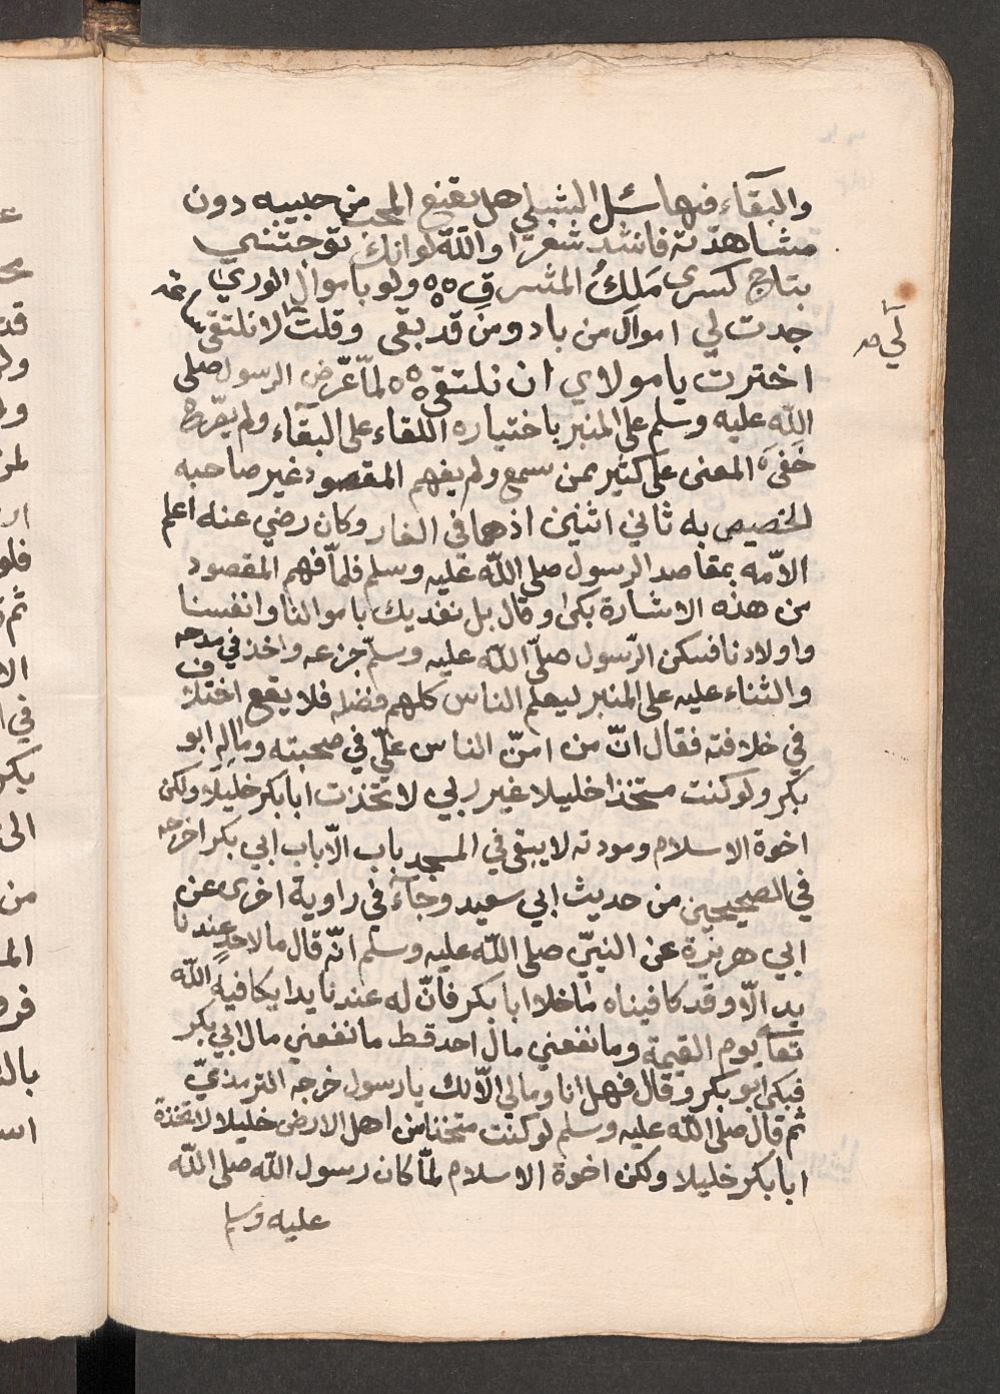 والبقآء فيها سئل الشبلي هل يقنع المحب من حبيبه دون
مشاهدته فانشد شعرا والله لو انك توجتني
بتاج كسرى مَلكُ المشرقِ ولو باموال الورى
جدت لي اموال من باد ومن قد بقى وقلت لا نلتقى
لي صح
اخترت يا مولاي ان نلتقى لمّا عرّض الرسول صلى
الله عليه وسلم على المنبر باختياره اللقاء على البقآء ولم يصّرح
خفى المعنى على كثير ممن سمع ولم يفهم المقصود غير صاحبه
الخصيص به ثاني اثنين اذ هما في الغار وكان رضي عنه اعلم
الامّه بمقاصد الرسول صلى الله عليه وسلم فلمّا فهم المقصود
من هذه الاشارة بكى وقال بل نفديك باموالنا وانفسنا
واولادنا فسكن الرّسول صلّى الله عليه وسلّم جزعه واخذ في مدحه
والثناء عليه على المنبر ليعلم الناس كلهم فضله فلا يقع اختلاف
في خلافته فقال انّ من امنّ الناس علىّ في صحبته وماله ابو
بكر ولو كنت متخذا خليلا غير ربي لاتخذت ابا بكر خليلا ولكن
اخوة الاسلام ومودته لا يبقى في المسجد باب الّا باب ابي بكر اخرجه
في الصحيحين من حديث ابي سعيد وجآء في راوية اخرى عن
ابي هريرة عن النبيّ صلى الله عليه وسلم انّه قال ما لاحدٍ عندنا
يد الّا وقد كافيناه ما خلا ابا بكر فانّ له عندنا يدا يكافيه الله
تعا يوم القيمة وما نفعني مال احد قط ما نفعني مال ابي بكر
فبكى ابو بكر وقال فهل انا ومالي الّا لك يا رسول خرجه الترمذيّ
ثم قال صلى الله عليه وسلم لو كنت متخذا من اهل الارض خليلا لاتخذة
ابا بكر خليلا ولكن اخوة الاسلام لمّا كان رسول الله صلى الله
عليه وسلم